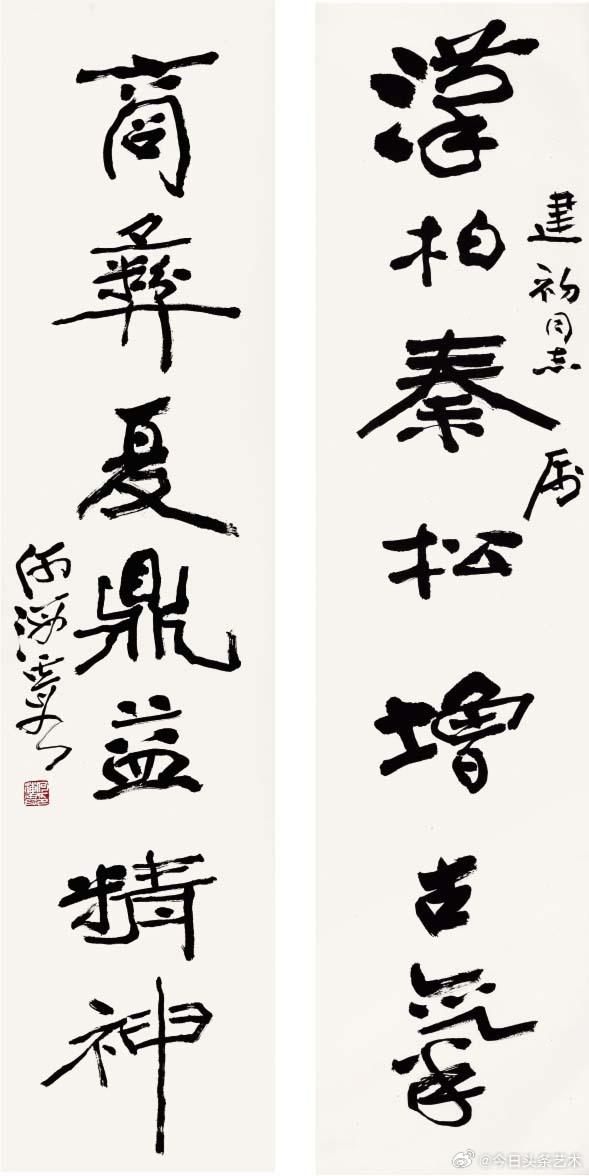 建初同志 属
漢柏秦松增古氣
商彝夏鼎益精神
何海霞书
@今日头条艺术